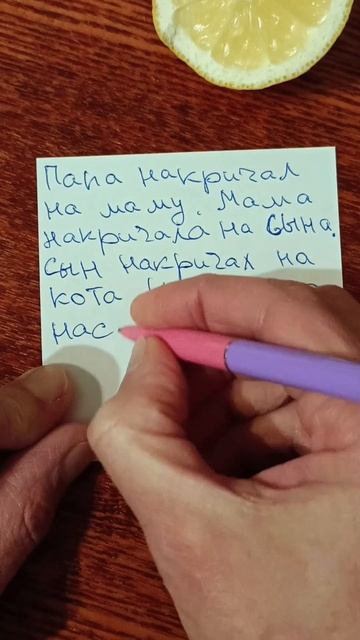 Папа накричал
на маму. Мама
накричала на сына.
Сын накричах на
кота
нас